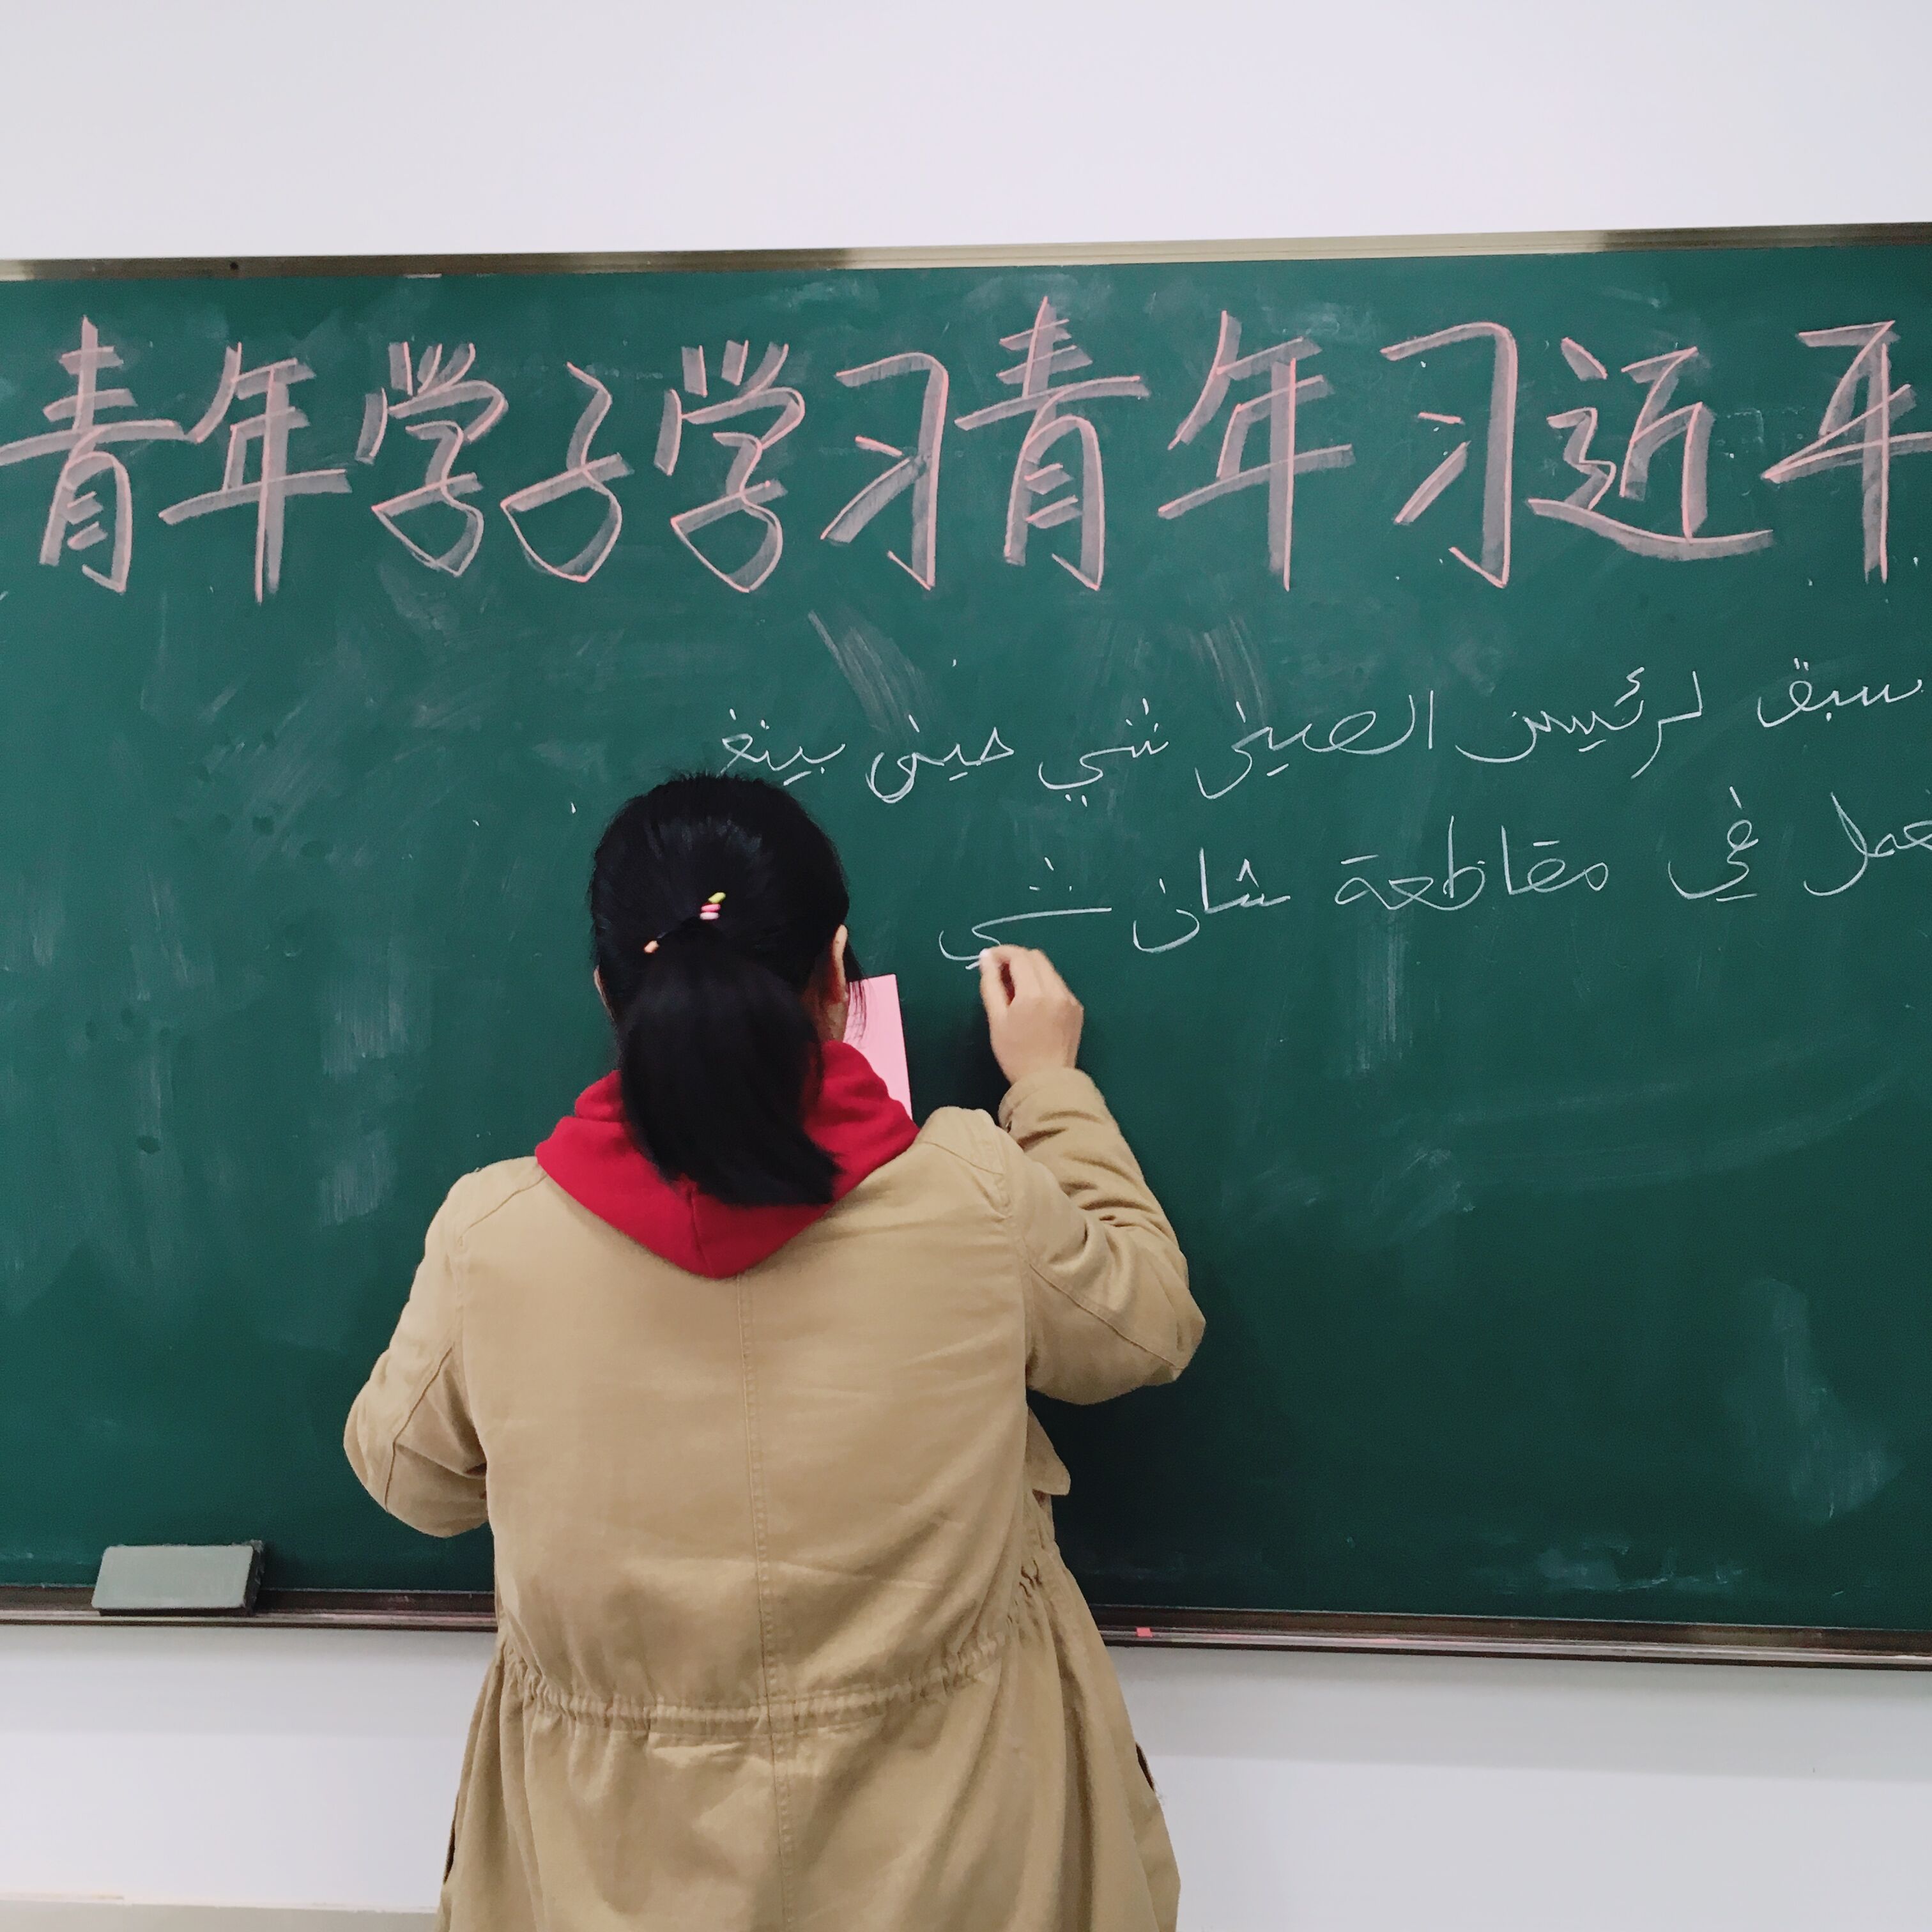 青年学子学习青年习近平
سبق لرئيس الصيني شي جين بينغ
في مقاطعة شان شي